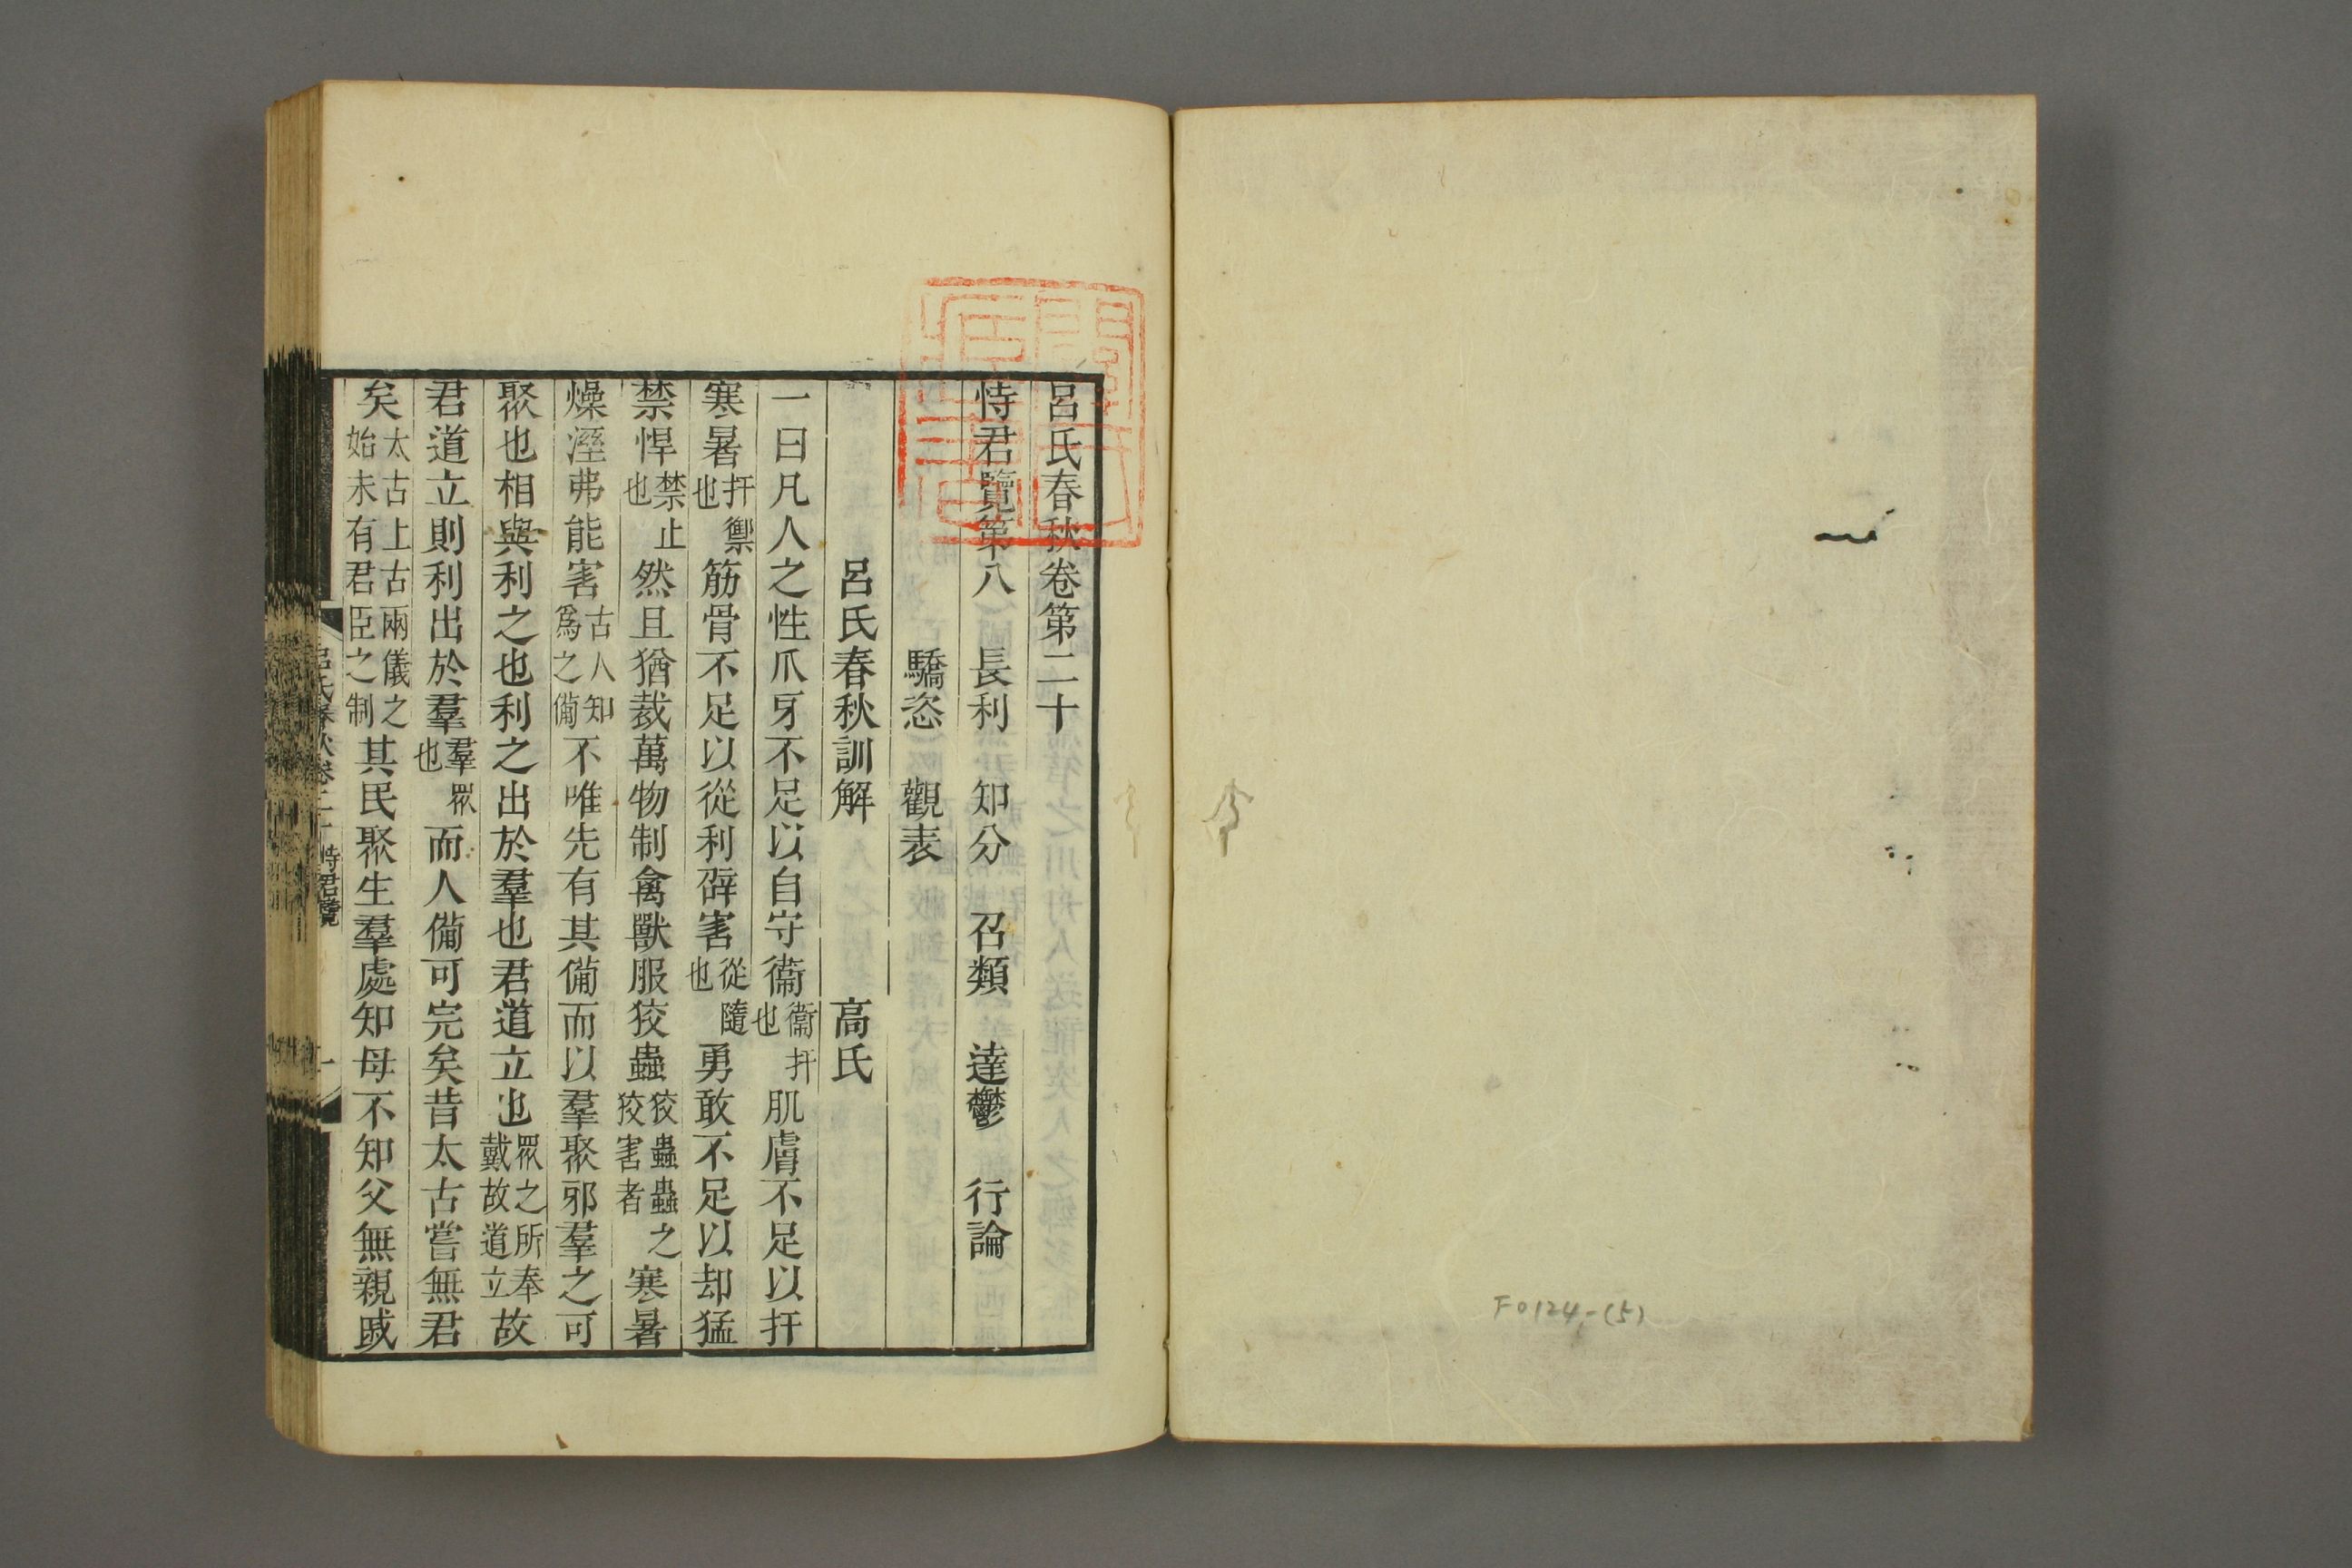 呂氏春秋卷第二十
恃君覽第八　長利　知分　召類　達鬱　行論
驕恣　觀表
呂氏春秋訓解　高氏
一曰凡人之性爪牙不足以自守衞衞扞也肌膚不足以扞
寒暑扞禦也筋骨不足以從利辟害從隨也勇敢不足以却猛
禁悍禁止也然且猶裁萬物制禽獸服狡蟲狡蟲蟲之狡害者寒暑
燥溼弗能害古人知爲之備不唯先有其備而以羣聚邪羣之可
聚也相與利之也利之出於羣也君道立也眾之所奉戴故道立故
君道立則利出於羣羣眾也而人備可完矣昔太古嘗無君
矣太古上古兩儀之始未有君臣之制其民聚生羣處知母不知父無親戚
呂氏春秋卷二十 恃君覽 一
F0124-(5)